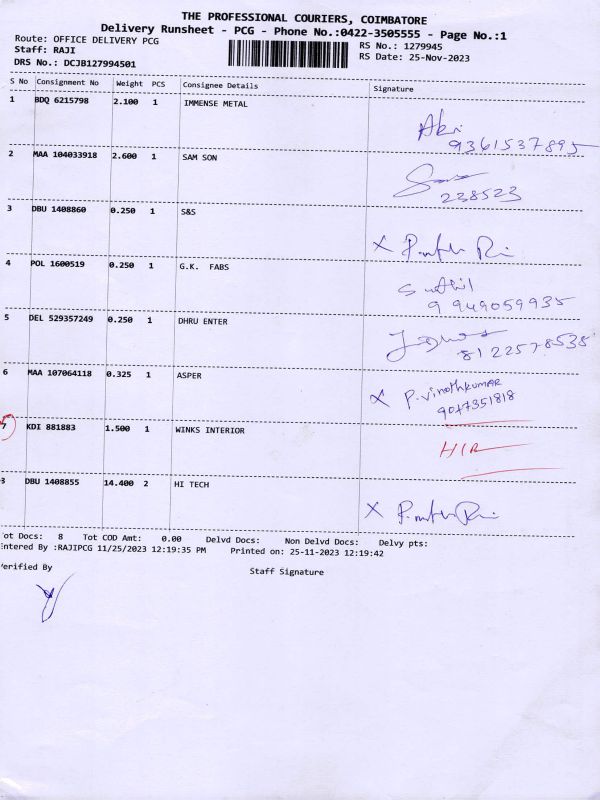 THE PROFESSIONAL COURIERS, COIMBATORE
Delivery Runsheet - PCG - Phone No.:0422-3505555 - Page No.:1
Route: OFFICE DELIVERY PCG RS No.: 1279945
Staff: RAJI RS Date: 25-Nov-2023
DRS No.: DCJB127994501
S No Consignment No Weight PCS Consignee Details Signature
1 BDQ 6215798 2.100 1 IMMENSE METAL
9361537895
2 MAA 104033918 2.600 1 SAM SON
238523
3 DBU 1408860 0.250 1 S&S
X
4 POL 1600519 0.250 1 G.K. FABS
9949059935
5 DEL 529357249 0.250 1 DHRU ENTER
8122578535
6 MAA 107064118 0.325 1 ASPER
X P.vinothkumar
9047351818
7 KDI 881883 1.500 1 WINKS INTERIOR
HIR
DBU 1408855 14.400 2 HI TECH
X
ot Docs: 8 Tot COD Amt: 0.00 Delvd Docs: Non Delvd Docs: Delvy pts:
ntered By :RAJIPCG 11/25/2023 12:19:35 PM Printed on: 25-11-2023 12:19:42
erified By
Staff Signature